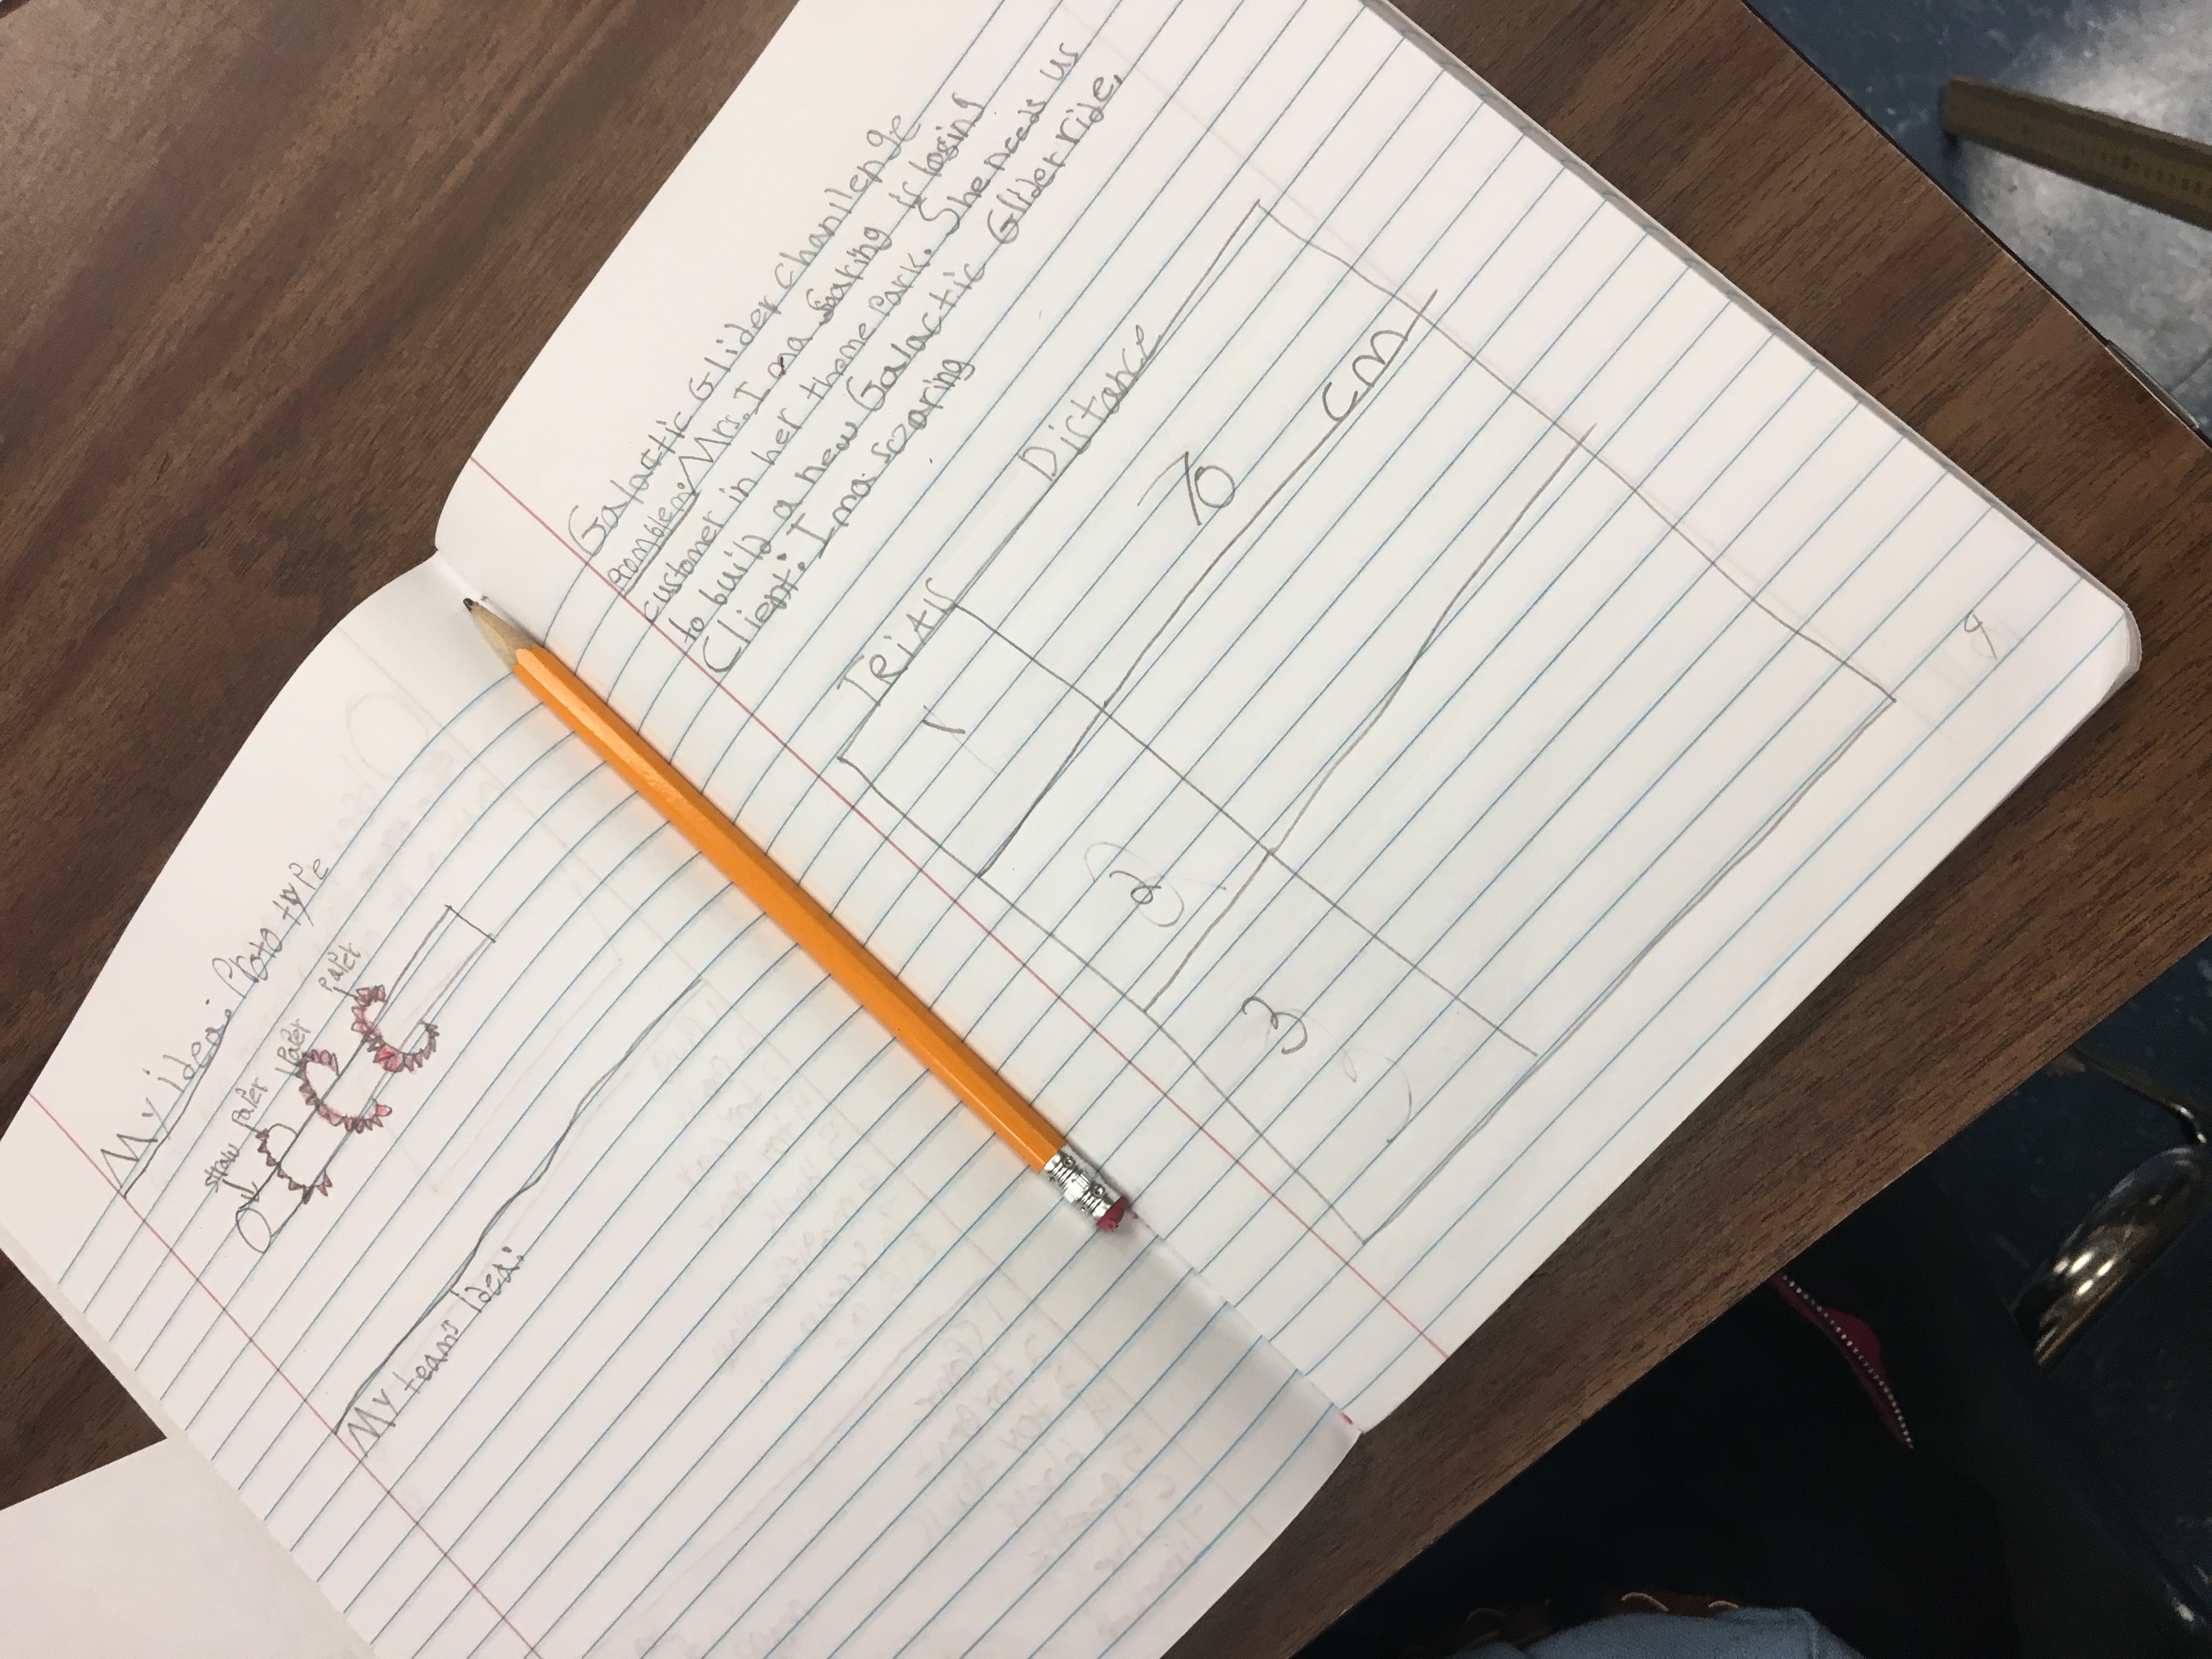 My idea: Prototype
straw paper paper paper
My team's Idea:
Galactic Glider Chanllenge
promblem: Mrs. I ma Soaring is losing
customer in her theme Park. She needs us
to build a new Galactic Glider ride.
Client: I ma sozaring
TRials Distance
1 70 cm
2
3
9